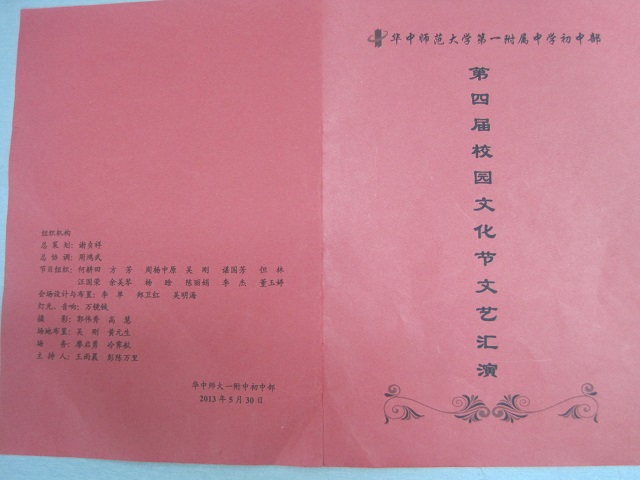 华中师范大学第一附属中学初中部
第四届校园文化节文艺汇演
组织机构
总 策 划：谢贵祥
总 协 调：周鸿武
节目组织：何耕田 方 芳 周杨中原 吴 刚 谌国芳 但 林
汪国荣 余美琴 杨 晗 陈丽娟 李 杰 董玉婷
会场设计与布置：李 单 郑卫红 吴明海
灯光、音响：万镜钱
摄 影：郭伟秀 高 慧
场地布置：吴 刚 黄元生
场 务：廖启勇 冷寒松
主 持 人：王雨晨 彭陈万里
华中师大一附中初中部
2013年5月30日